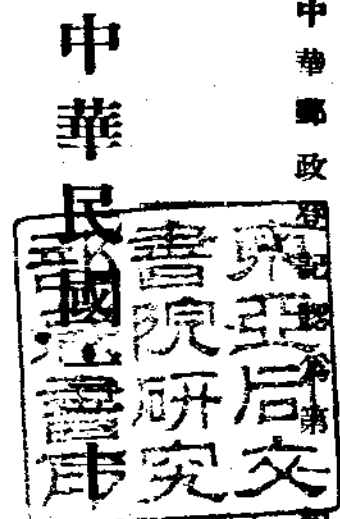 中華郵政登記認為第
中華民國
東亞同文
書院研究
書庫